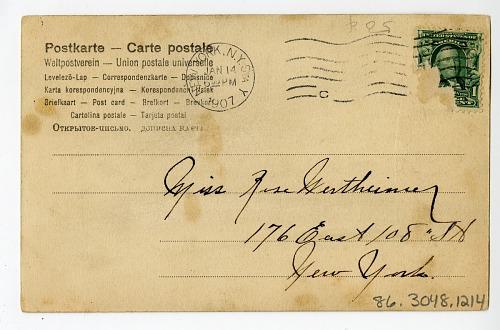 Postkarte — Carte postale
Weltpostverein — Union postale universelle
Levelező-Lap — Correspondenzkarte — Dopisnice
Karta korespondencyjna — Korespondenční lístek
Briefkaart — Post card — Brefkort — Brevkort
Cartolina postale — Tarjeta postal
Открытое письмо.
NEW YORK, N.Y.
JAN 14
PM
1907
C
Miss Rose Wertheimer
176 East 108" St
New York.
86.3048.1214